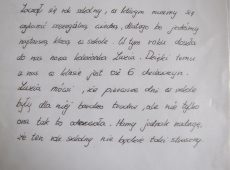 Zaczął się rok szkolny, w którym musimy się
wykazać szczególną wiedzą, dlatego że jesteśmy
najstarszą klasą w szkole. W tym roku doszła
do nas nowa koleżanka Zuzia. Dzięki temu
u nas w klasie jest już 6 dziewczyn.
Zuzia mówi, że pierwsze dni w szkole
były dla niej bardzo trudne, ale nie tylko
ona tak to odczuwała. Mamy jednak nadzieję,
że ten rok szkolny nie będzie taki straszny.